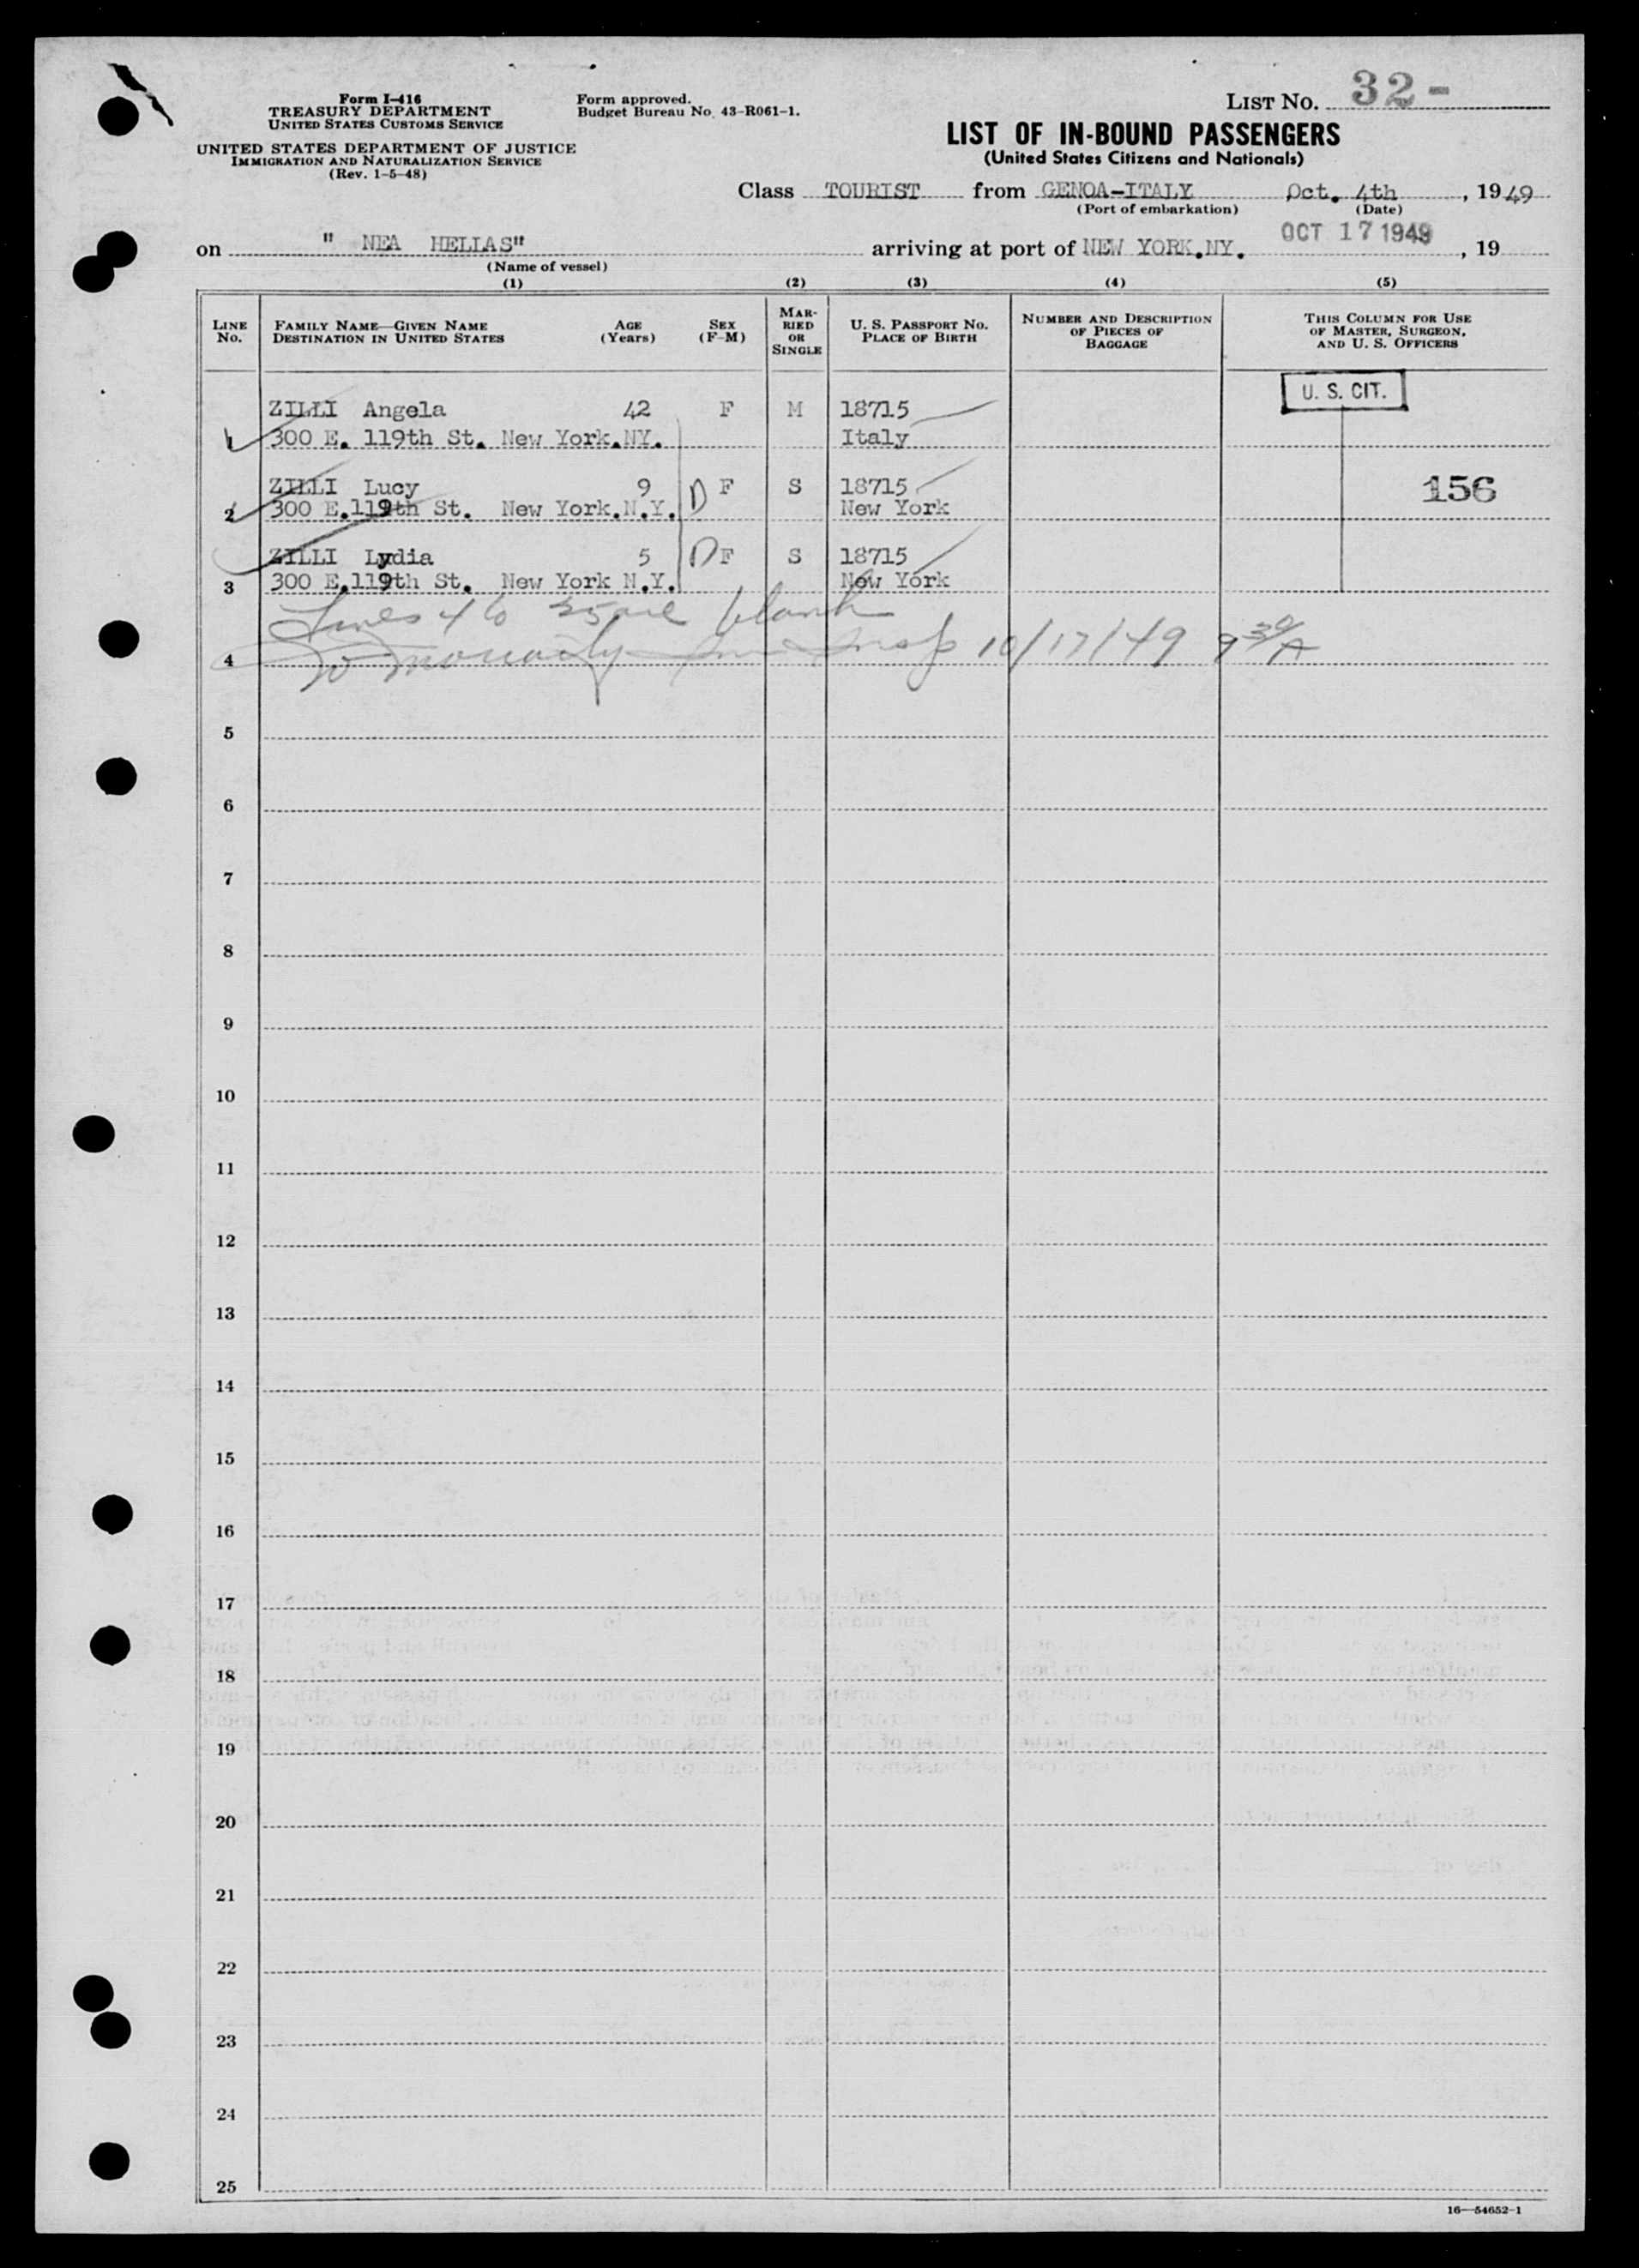 Form I-416
TREASURY DEPARTMENT
UNITED STATES CUSTOMS SERVICE
UNITED STATES DEPARTMENT OF JUSTICE
IMMIGRATION AND NATURALIZATION SERVICE
(Rev. 1-5-48)
Form approved.
Budget Bureau No. 43-R061-1.
LIST NO. 32-
LIST OF IN-BOUND PASSENGERS
(United States Citizens and Nationals)
Class TOURIST from GENOA-ITALY Oct. 4th, 1949
(Port of embarkation) (Date)
on " NEA HELLAS" arriving at port of NEW YORK.NY. OCT 17 1949, 19
(Name of vessel)
(1) (2) (3) (4) (5)
LINE No.
FAMILY NAME—GIVEN NAME
DESTINATION IN UNITED STATES
AGE (Years)
SEX (F-M)
MARRIED OR SINGLE
U. S. PASSPORT NO.
PLACE OF BIRTH
NUMBER AND DESCRIPTION OF PIECES OF BAGGAGE
THIS COLUMN FOR USE OF MASTER, SURGEON, AND U. S. OFFICERS
U. S. CIT.
ZILLI Angela 42 F M 18715
1 300 E. 119th St. New York.NY. Italy
ZILLI Lucy 9 D F S 18715 156
2 300 E.119th St. New York.N.Y. New York
ZILLI Lydia 5 D F S 18715
3 300 E.119th St. New York N.Y. New York
Lines 4 to 25 are blank
4 Insp 10/17/49 9 30/A
5
6
7
8
9
10
11
12
13
14
15
16
17
18
19
20
21
22
23
24
25
16—54652-1